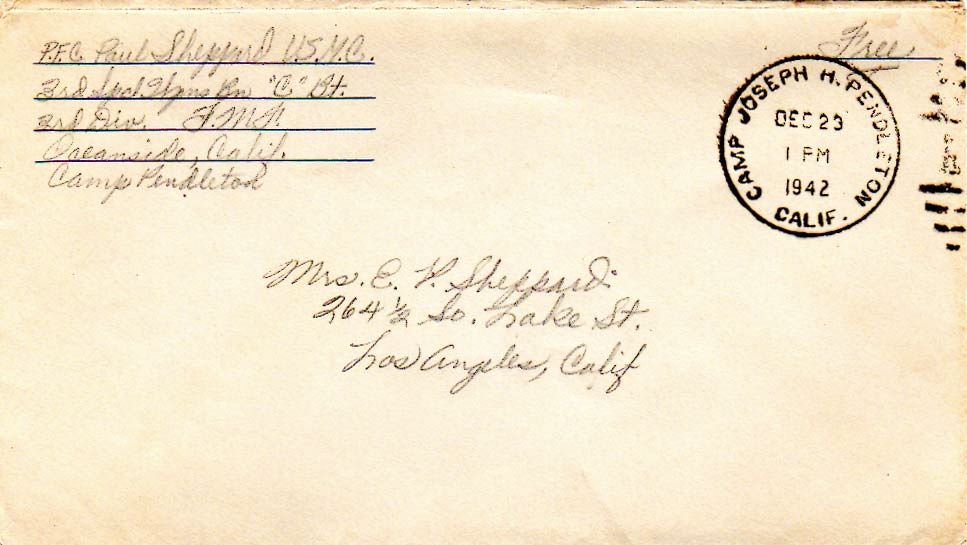 P.F.C. Paul Sheppard U.S.M.C.
3rd Spcl Wpns Bn "C" Bt.
3rd Div. F.M.F.
Oceanside, Calif.
Camp Pendleton
Free
CAMP JOSEPH H. PENDLETON
DEC 23
1 PM
1942
CALIF.
Mrs. E. H. Sheppard
264 1/2 So. Lake St.
Los Angeles, Calif